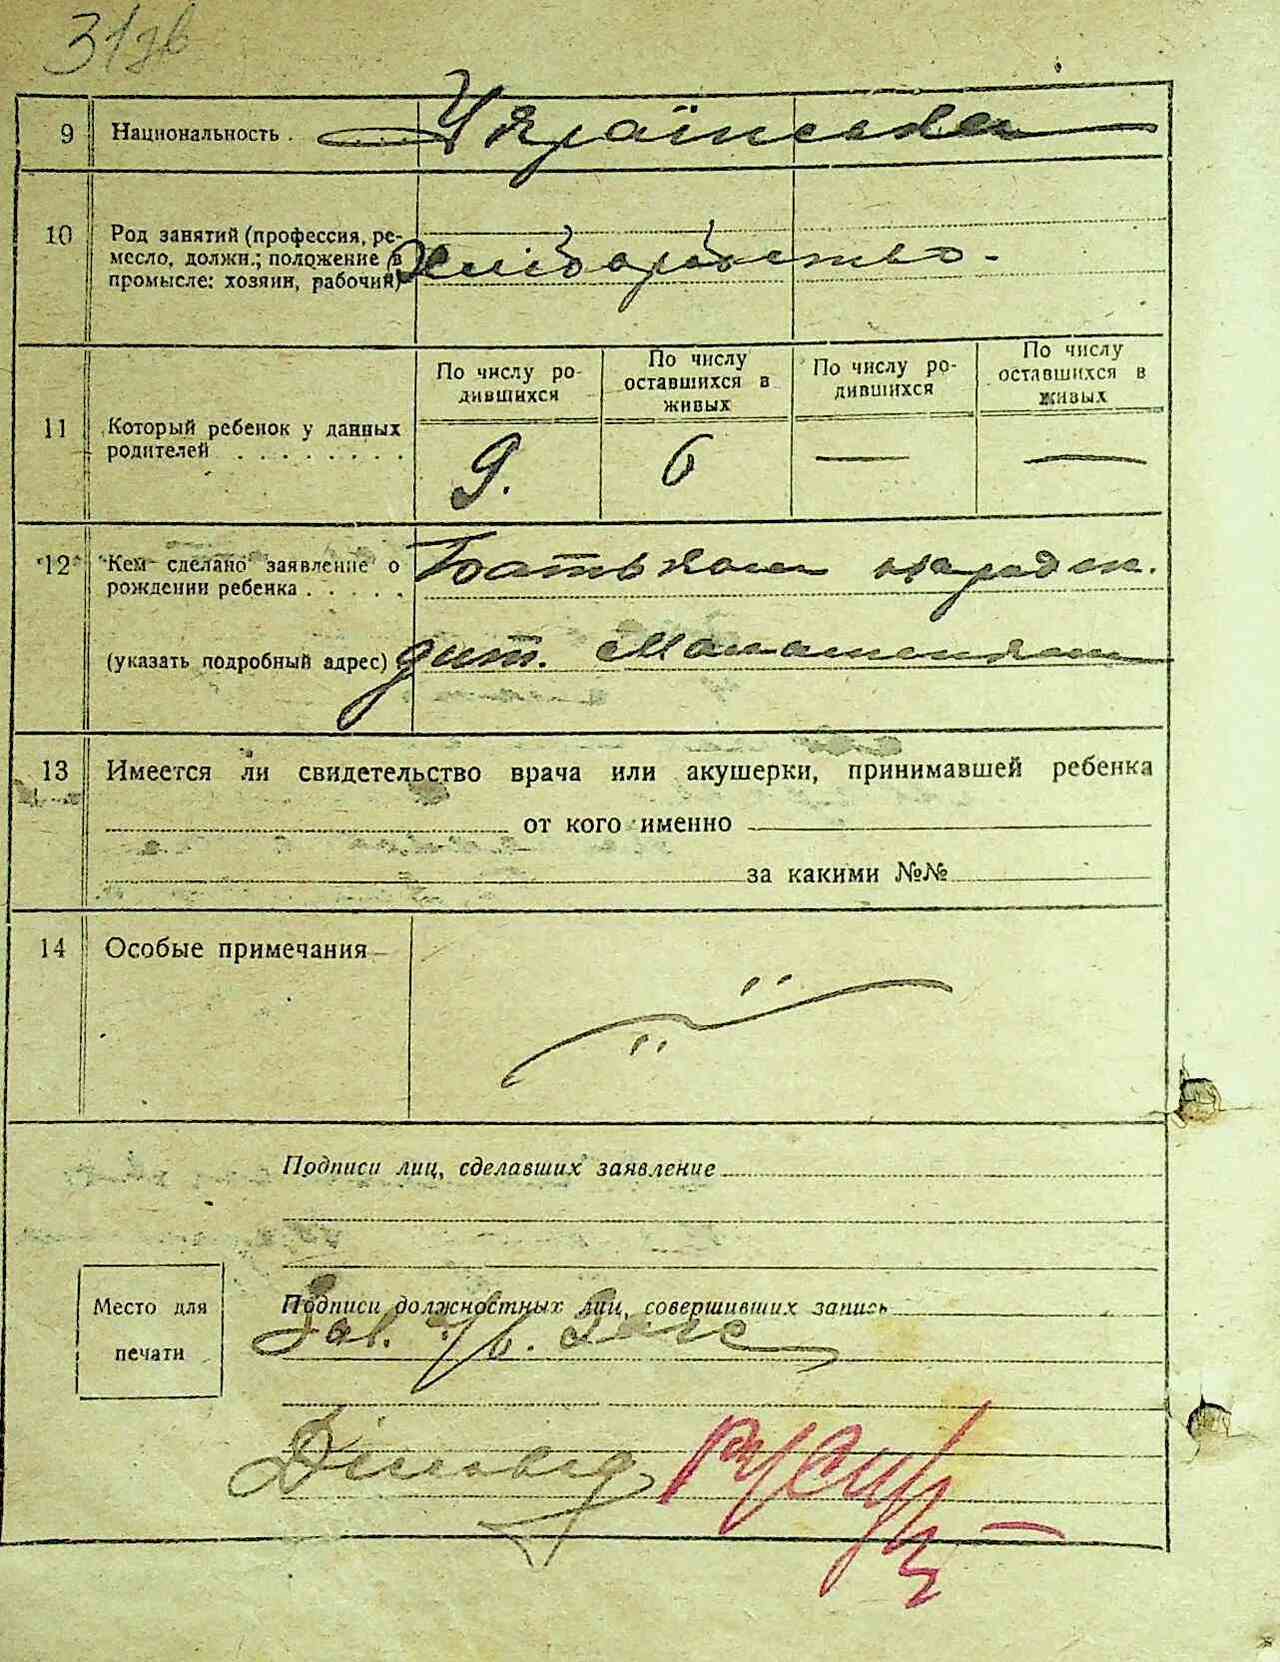 31зв
9 Национальность . Українська
10 Род занятий (профессия, ре-
месло, должн.; положение в
промысле: хозяин, рабочий)
Хліборобство.
По числу ро-
дившихся
По числу
оставшихся в
живых
По числу ро-
дившихся
По числу
оставшихся в
живых
11 Который ребенок у данных
родителей . . . . . . . .
9. 6 — —
12 Кем сделано заявление о
рождении ребенка . . . . .
Батьком народж.
(указать подробный адрес) дит.
13 Имеется ли свидетельство врача или акушерки, принимавшей ребенка
от кого именно
за какими №№
14 Особые примечания
Подписи лиц, сделавших заявление
Место для
печати
Подписи должностных лиц, совершивших запись
Зав. Загс
Діловод